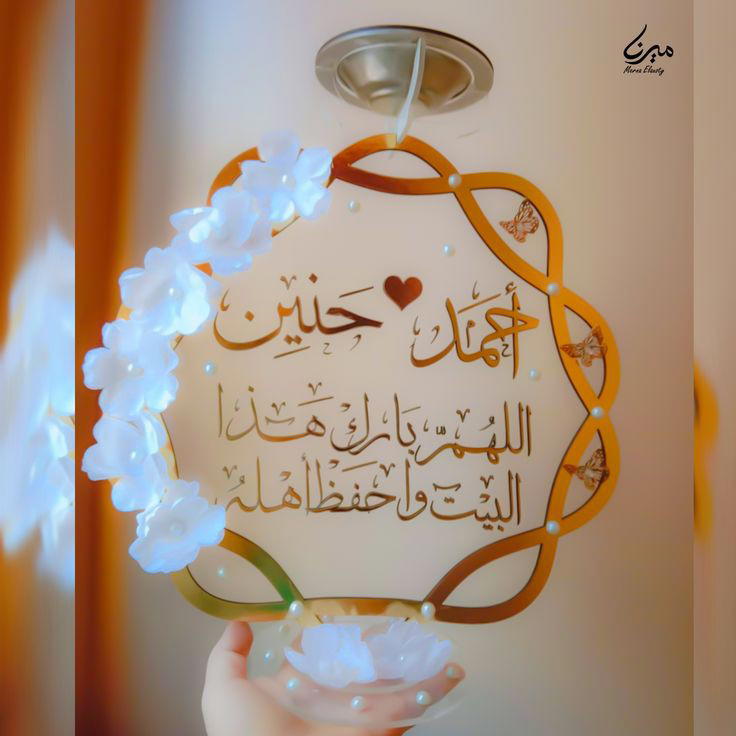 ميرنا
Merna Elausty
أَحمَد ❤ حَنيِن
اللهُمّ بَارك هَذا
البيْت واحفَظ أهلهُ